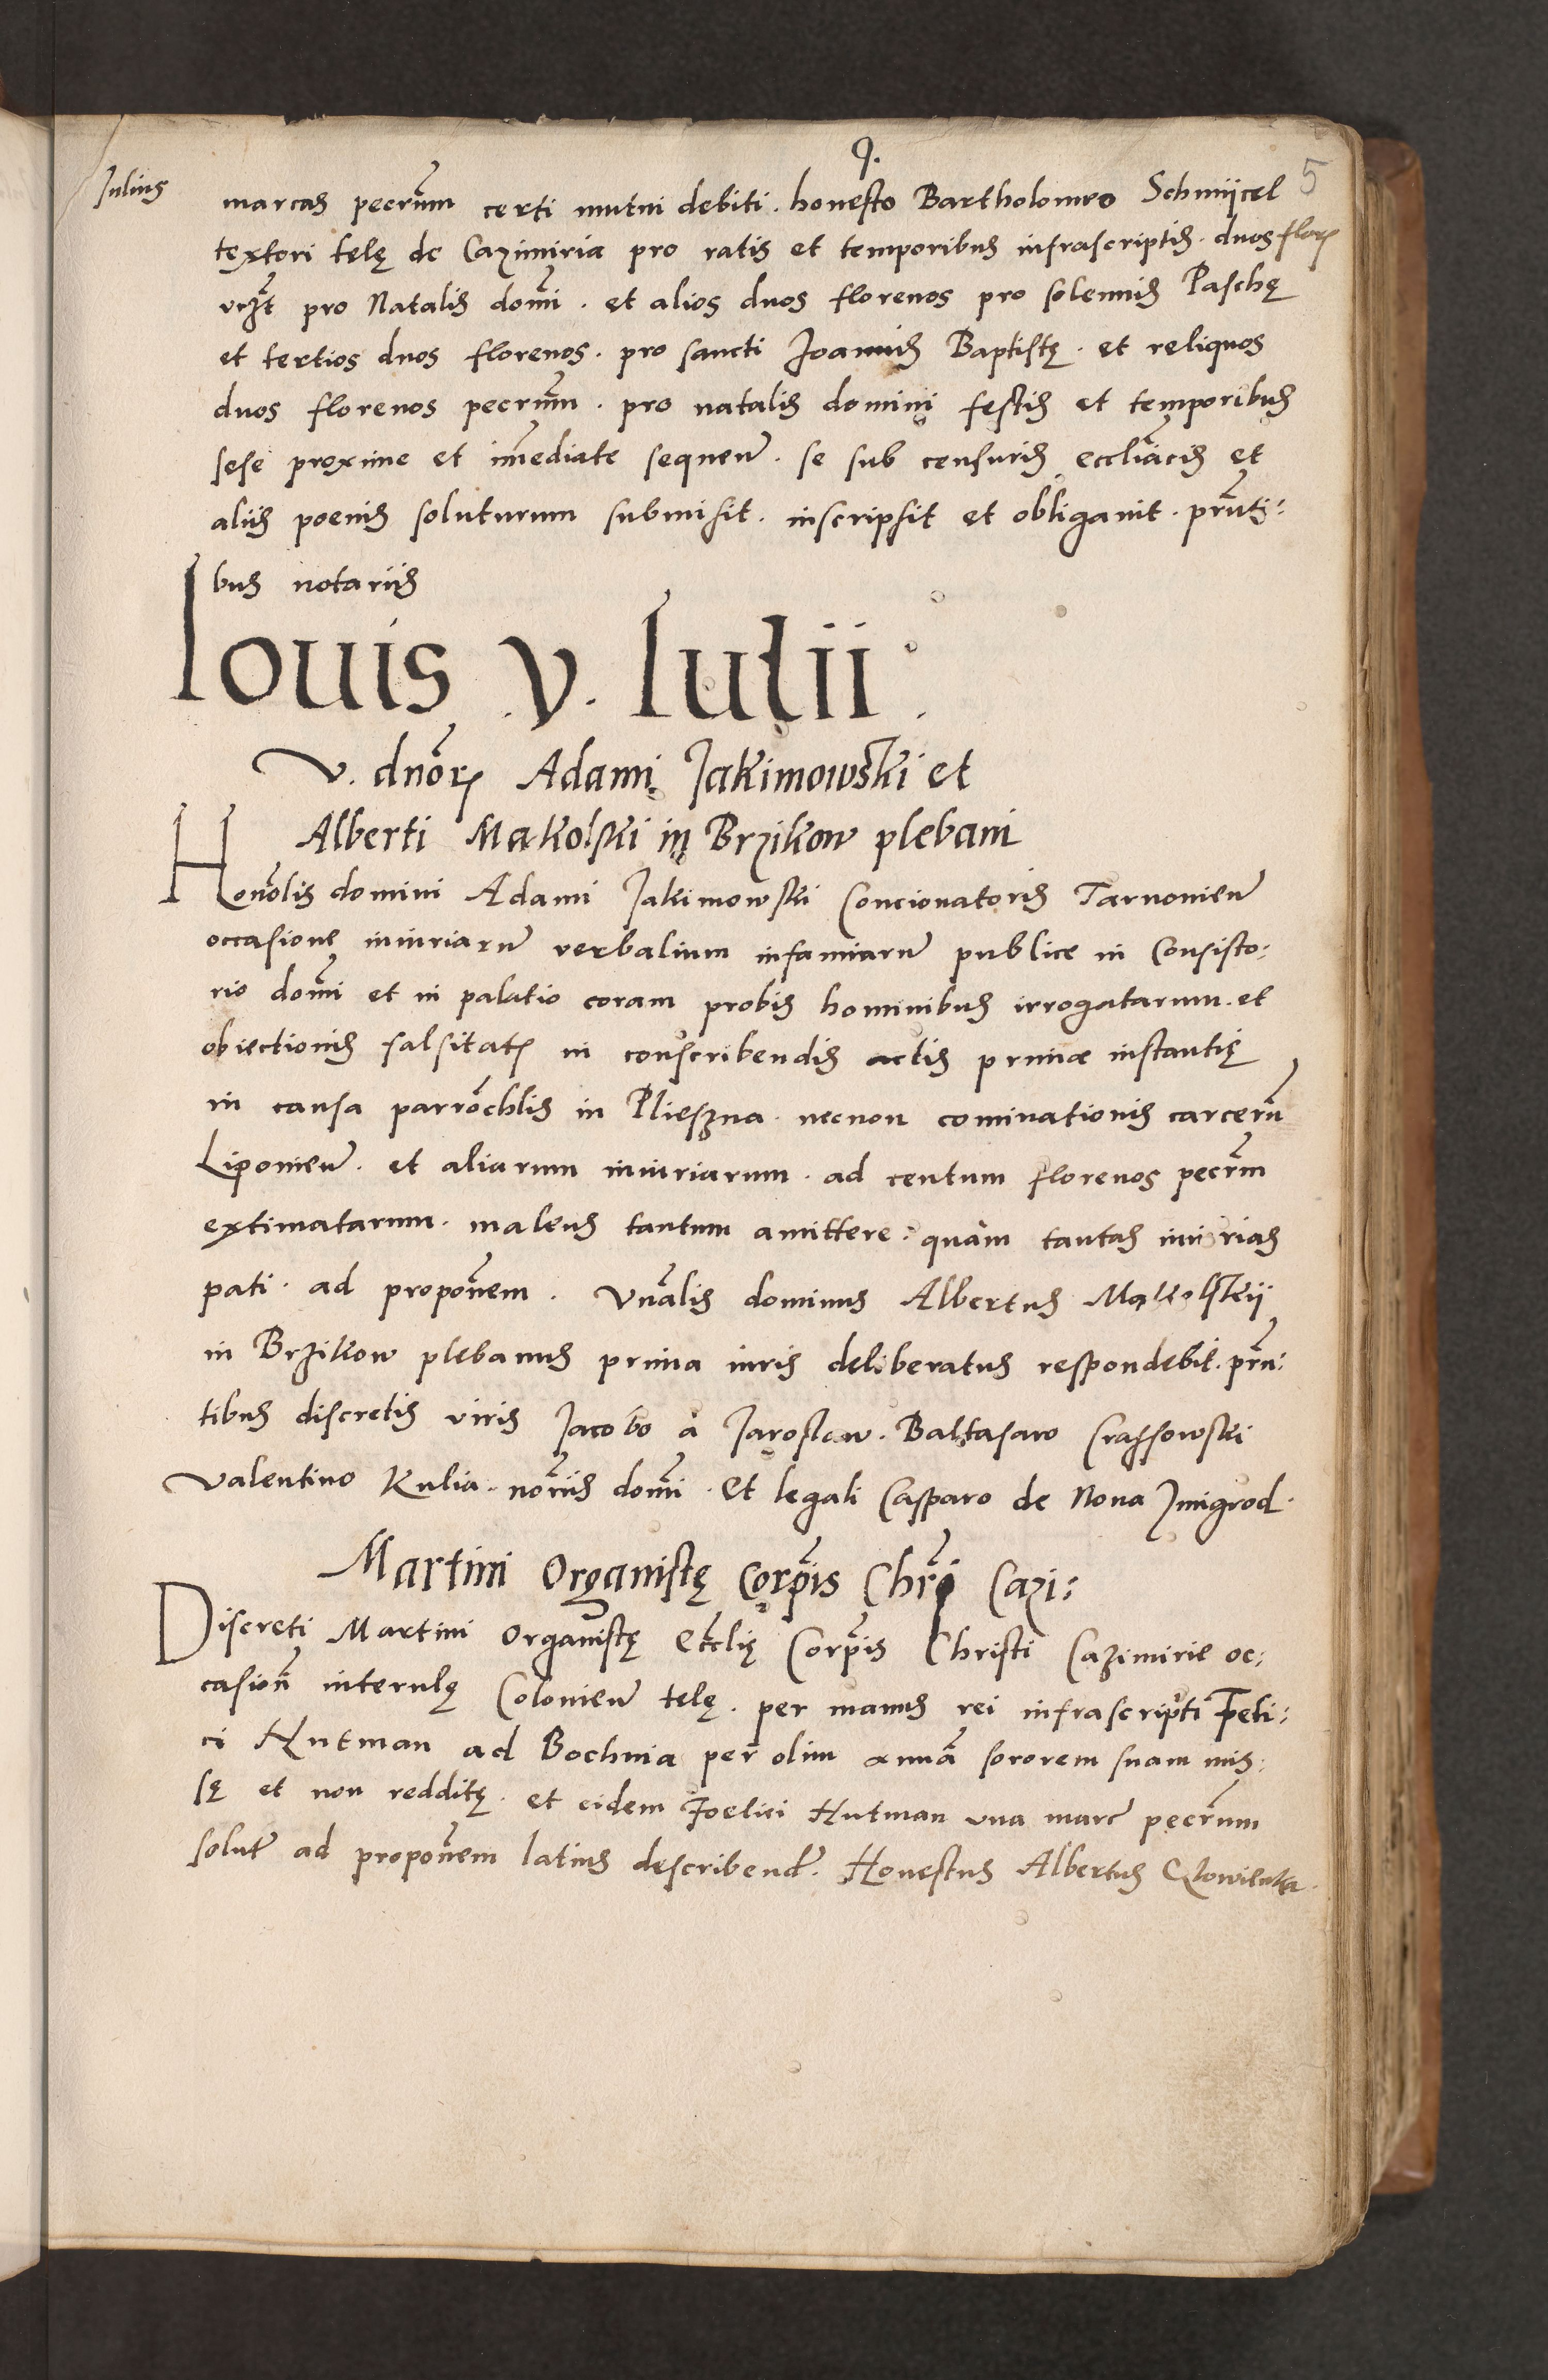 9.
5
Iulius
marcas pecu͂m certi mutui debiti. honesto Bartholomeo Schmijcel
textori telę de Cazimiria pro ratis et temporibus infrascriptis. duos flor
vczt pro Natalis domi. et alios duos florenos pro solennis Paschę
et tertios duos florenos. pro sancti Joannis Baptistę. et reliquos
duos florenos pecrum. pro natalis domini festis et temporibus
sese proxime et imediate sequen. se sub censuris eccliacis et
aliis poenis soluturum submisit. inscripsit et obligauit. prnti:
bus notariis
Iouis v. Iulii.
V. dnor Adami Jakimowski et
Alberti Makolski in Brzikow plebani
Honolis domini Adami Jakimowski Concionatoris Tarnouien
occasione iniuriarum verbalium infamiarum publice in Consisto:
rio domi et in palatio coram probis hominibus irrogatarum. et
obiectionis falsitatis in conscribendis actis primae instantię
in causa parrochlis in Plieszna. necnon cominationis carcerum
Lipouien. et aliarum iniuriarum. ad centum florenos pecrum
extimatarum. malens tantum amittere: quàm tantas iniurias
pati. ad proponem. Vnalis dominus Albertus Makolskij
in Brzikow plebanus prima iuris deliberatus respondebit. prn:
tibus discretis viris Jacobo à Jaroslow. Baltasaro Crassowski
Valentino Kulia. noriis domi. Et legali Casparo de Noua Zmigrod.
Martini Organistę Corpis Chri Cazi:
Discreti Martini Organistę Ecclię Corpis Christi Cazimirie oc:
casion interulę Colonien telę. per manus rei infrascripti Foeli:
ci Hutman ad Bochnia per olim annã sororem suam mis:
sę et non redditę. et eidem Foelici Hutman vna marc pecrum
solut ad proponem latius describend. Honestus Albertus